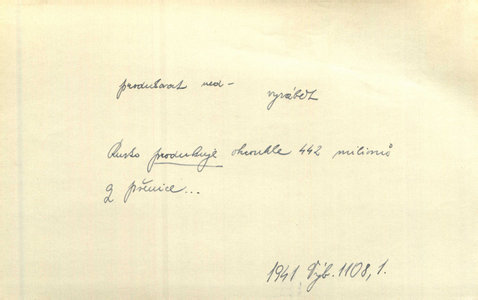 produkovat ned-
vyrábět
Rusko produkuje okrouhle 442 milionů
q pšenice...
1941 Výb. 1108, 1.